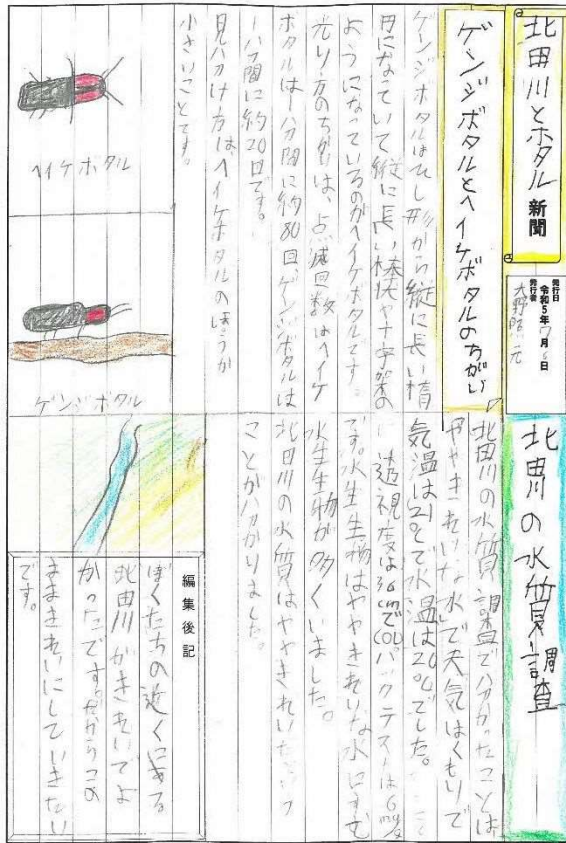 北田川とホタル新聞
発行日
令和5年7月6日
発行者
ゲンジボタルとヘイケボタルのちがい
ゲンジボタルはひし形から縦に長い楕
円になっていて縦に長い棒状や十字架の
ようになっているのがヘイケボタルです。
光り方のちがいは、点滅回数はヘイケ
ボタルは1分間に約80回ゲンジボタルは
一分間に約20回です。
見分け方は、ヘイケボタルのほうが
小さいことです。
ヘイケボタル
ゲンジボタル
北田川の水質調査
北田川の水質調査で分かったことは
ややきれいな水で天気はくもりで
気温は21℃で水温は20℃でした。
透視度は36cmでCODパックテストは6mg/L
です。水生生物はややきれいな水にすむ
水生生物が多くいました。
北田川の水質はややきれいだという
ことが分かりました。
編集後記
ぼくたちの近くにある
北田川がきれいでよ
かったです。だからこの
ままきれいにしていきたい
です。